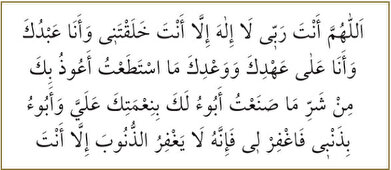 اَللّٰهُمَّ أَنْتَ رَبِّي لَا إِلٰهَ إِلَّا أَنْتَ خَلَقْتَنِي وَأَنَا عَبْدُكَ
وَأَنَا عَلٰى عَهْدِكَ وَوَعْدِكَ مَا اسْتَطَعْتُ أَعُوذُ بِكَ
مِنْ شَرِّ مَا صَنَعْتُ أَبُوءُ لَكَ بِنِعْمَتِكَ عَلَيَّ وَأَبُوءُ
بِذَنْبِي فَاغْفِرْ لِي فَإِنَّهُ لَا يَغْفِرُ الذُّنُوبَ إِلَّا أَنْتَ